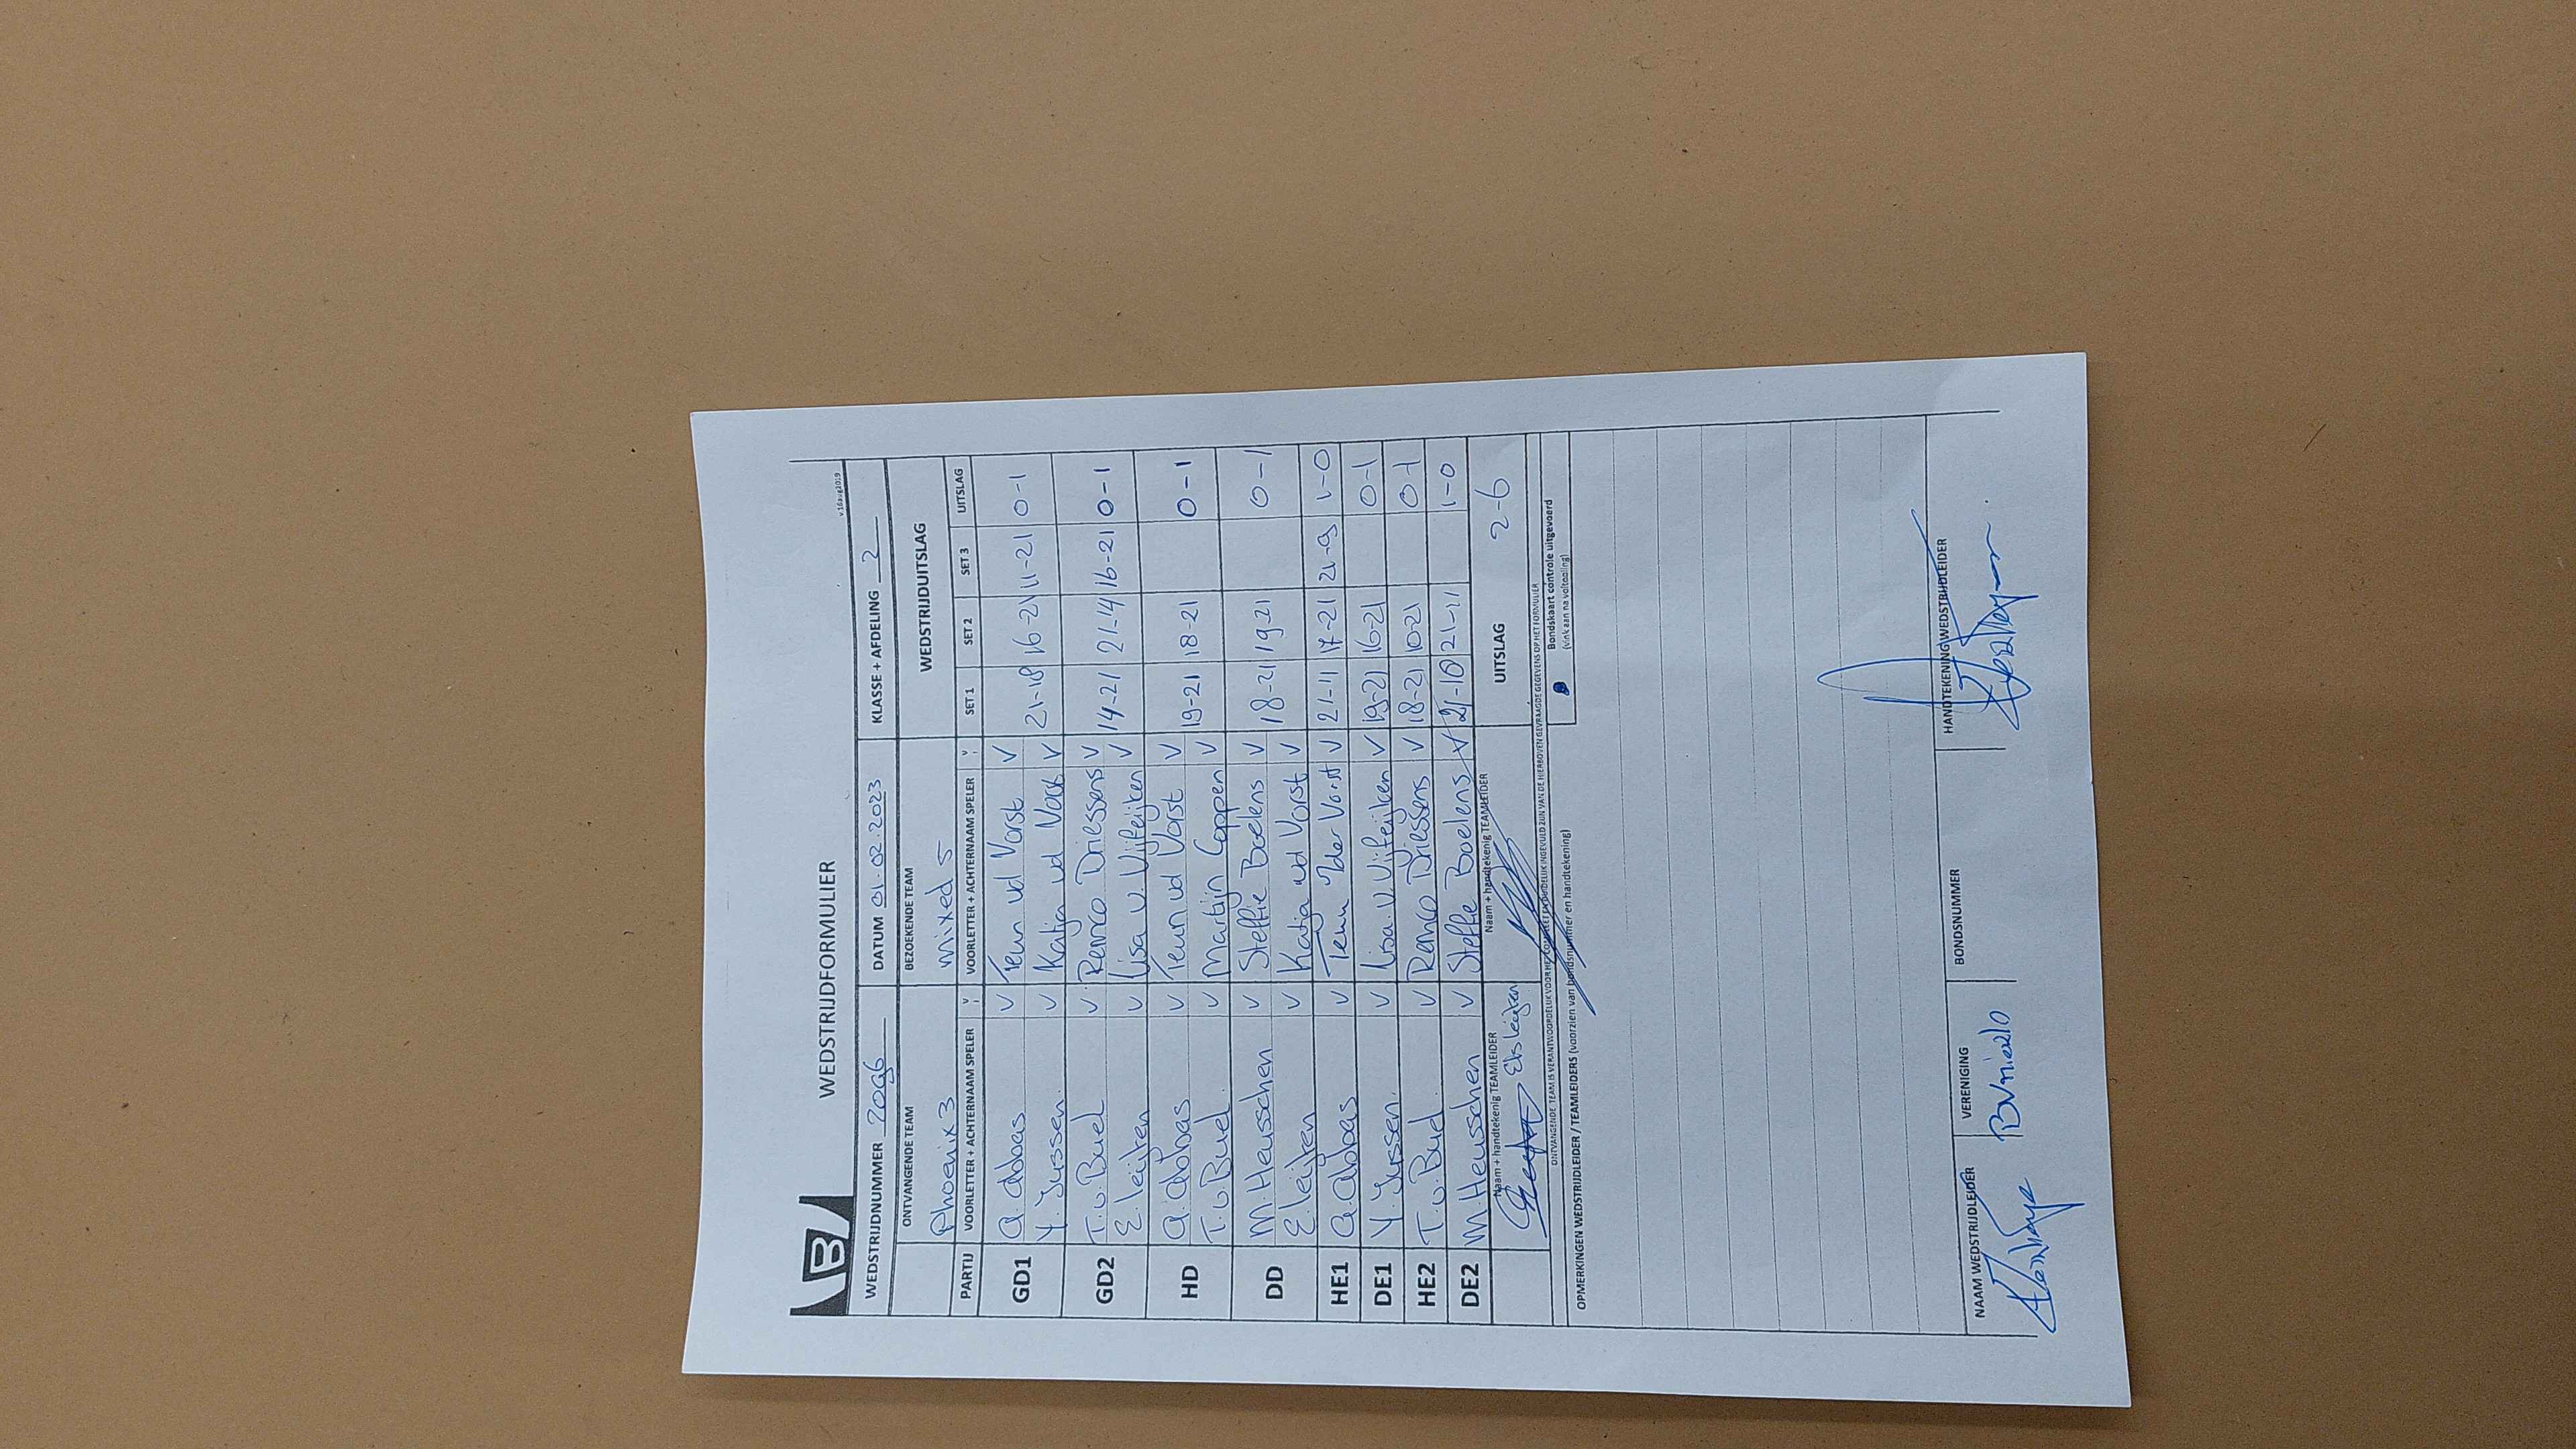 B
WEDSTRIJDFORMULIER
v.16aug2019
WEDSTRIJDNUMMER 2096 DATUM 01.02.2023 KLASSE + AFDELING 2
ONTVANGENDE TEAM BEZOEKENDE TEAM WEDSTRIJDUITSLAG
Phoenix 3 mixed 5
PARTIJ VOORLETTER + ACHTERNAAM SPELER V VOORLETTER + ACHTERNAAM SPELER V SET 1 SET 2 SET 3 UITSLAG
GD1 a. abbas V Teun vd Vorst V 21-18 16-21 11-21 0-1
Y. Jussen. V Katja vd Vorst V
GD2 T.v. Buel V Remco Driessens V 14-21 21-14 16-21 0-1
E. leijten V Lisa v. Vijfeijken V
HD a. abbas V Teun vd Vorst V 19-21 18-21 0-1
T.v Buel. V Martijn Coppen V
DD M. Heusschen V Steffie Boelens V 18-21 19-21 0-1
E. leijten V Katja vd Vorst V
HE1 a. abbas V Teun vder Vorst V 21-11 17-21 21-9 1-0
DE1 Y. Jussen. V Lisa v. Vijfeijken V 19-21 16-21 0-1
HE2 T.v. Buel V Remco Driessens V 18-21 10-21 0-1
DE2 M. Heusschen V Steffie Boelens V 21-10 21-11 1-0
Naam + handtekenig TEAMLEIDER Naam + handtekenig TEAMLEIDER UITSLAG 2-6
Els leijten
ONTVANGENDE TEAM IS VERANTWOORDELIJK VOOR HET COMPLEET EN DUIDELIJK INGEVULD ZIJN VAN DE HIERBOVEN GEVRAAGDE GEGEVENS OP HET FORMULIER
Bondskaart controle uitgevoerd
(vink aan na voltooiing)
OPMERKINGEN WEDSTRIJDLEIDER / TEAMLEIDERS (voorzien van bondsnummer en handtekening)
NAAM WEDSTRIJDLEIDER VERENIGING BONDSNUMMER HANDTEKENING WEDSTRIJDLEIDER
BVnierlo